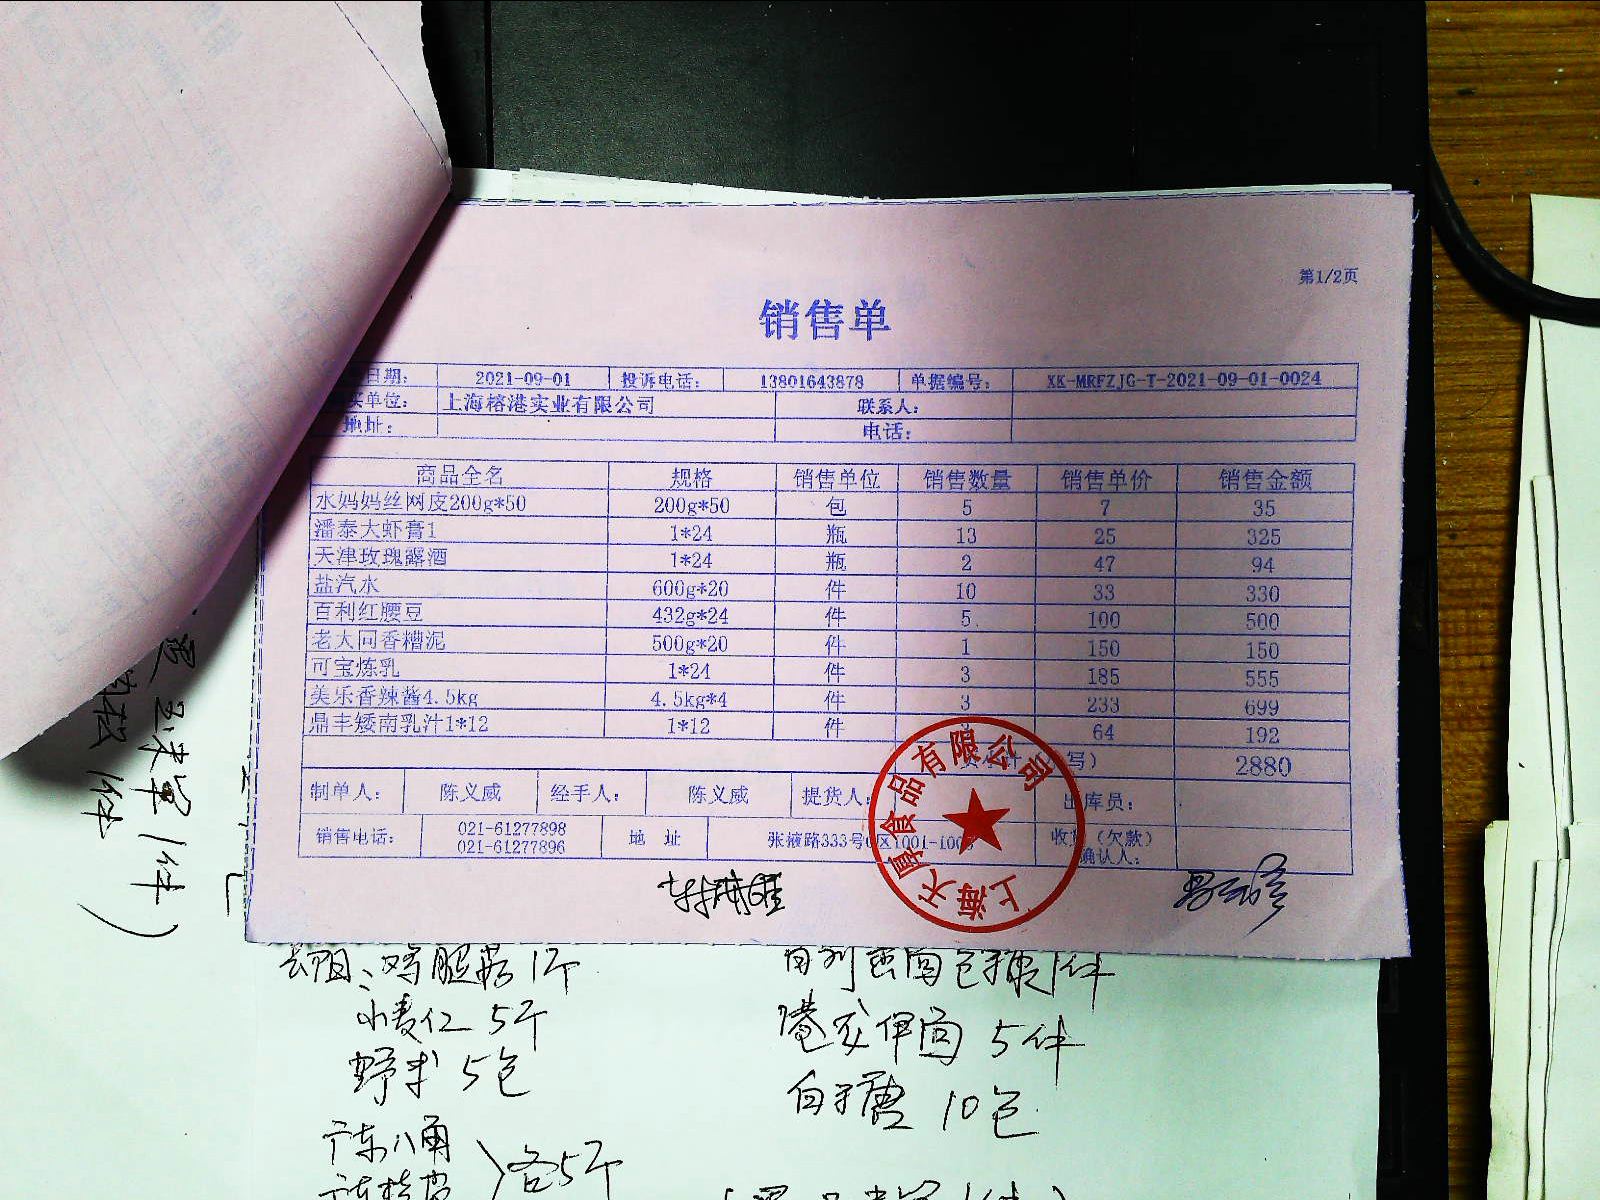 第1/2页
销售单
日期： 2021-09-01 投诉电话： 13801643878 单据编号： XK-MRFZJG-T-2021-09-01-0024
买单位： 上海榕港实业有限公司 联系人：
地址： 电话：
商品全名 规格 销售单位 销售数量 销售单价 销售金额
水妈妈丝网皮200g*50 200g*50 包 5 7 35
潘泰大虾膏1 1*24 瓶 13 25 325
天津玫瑰露酒 1*24 瓶 2 47 94
盐汽水 600g*20 件 10 33 330
百利红腰豆 432g*24 件 5 100 500
老大同香糟泥 500g*20 件 1 150 150
可宝炼乳 1*24 件 3 185 555
美乐香辣酱4.5kg 4.5kg*4 件 3 233 699
鼎丰矮南乳汁1*12 1*12 件 64 192
写） 2880
制单人： 陈义威 经手人： 陈义威 提货人： 出库员：
销售电话： 021-61277898 地 址 张掖路333号 区1001-100 收货（欠款）
021-61277896 确认人：
有限公司
小麦仁 5斤
野米 5包
5件
10包
广东八角
各5斤
1件）